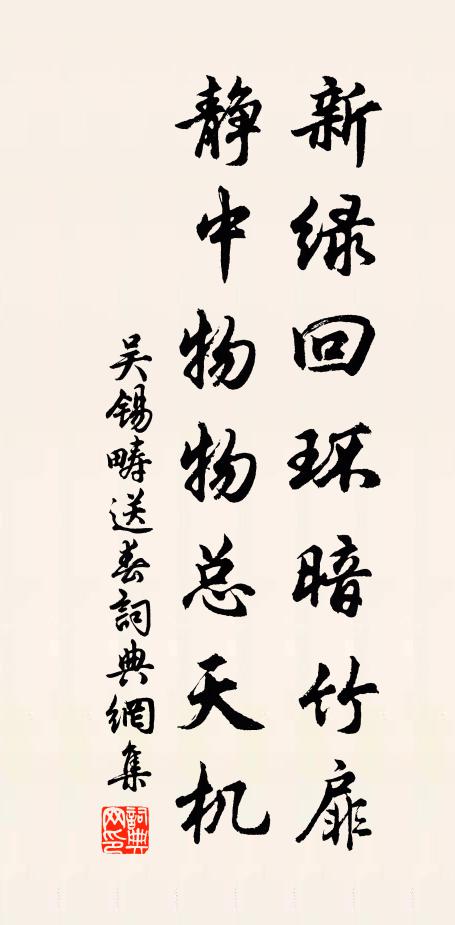 新绿回环暗竹扉
静中物物总天机
吴锡畴送春詞典網集
詞典